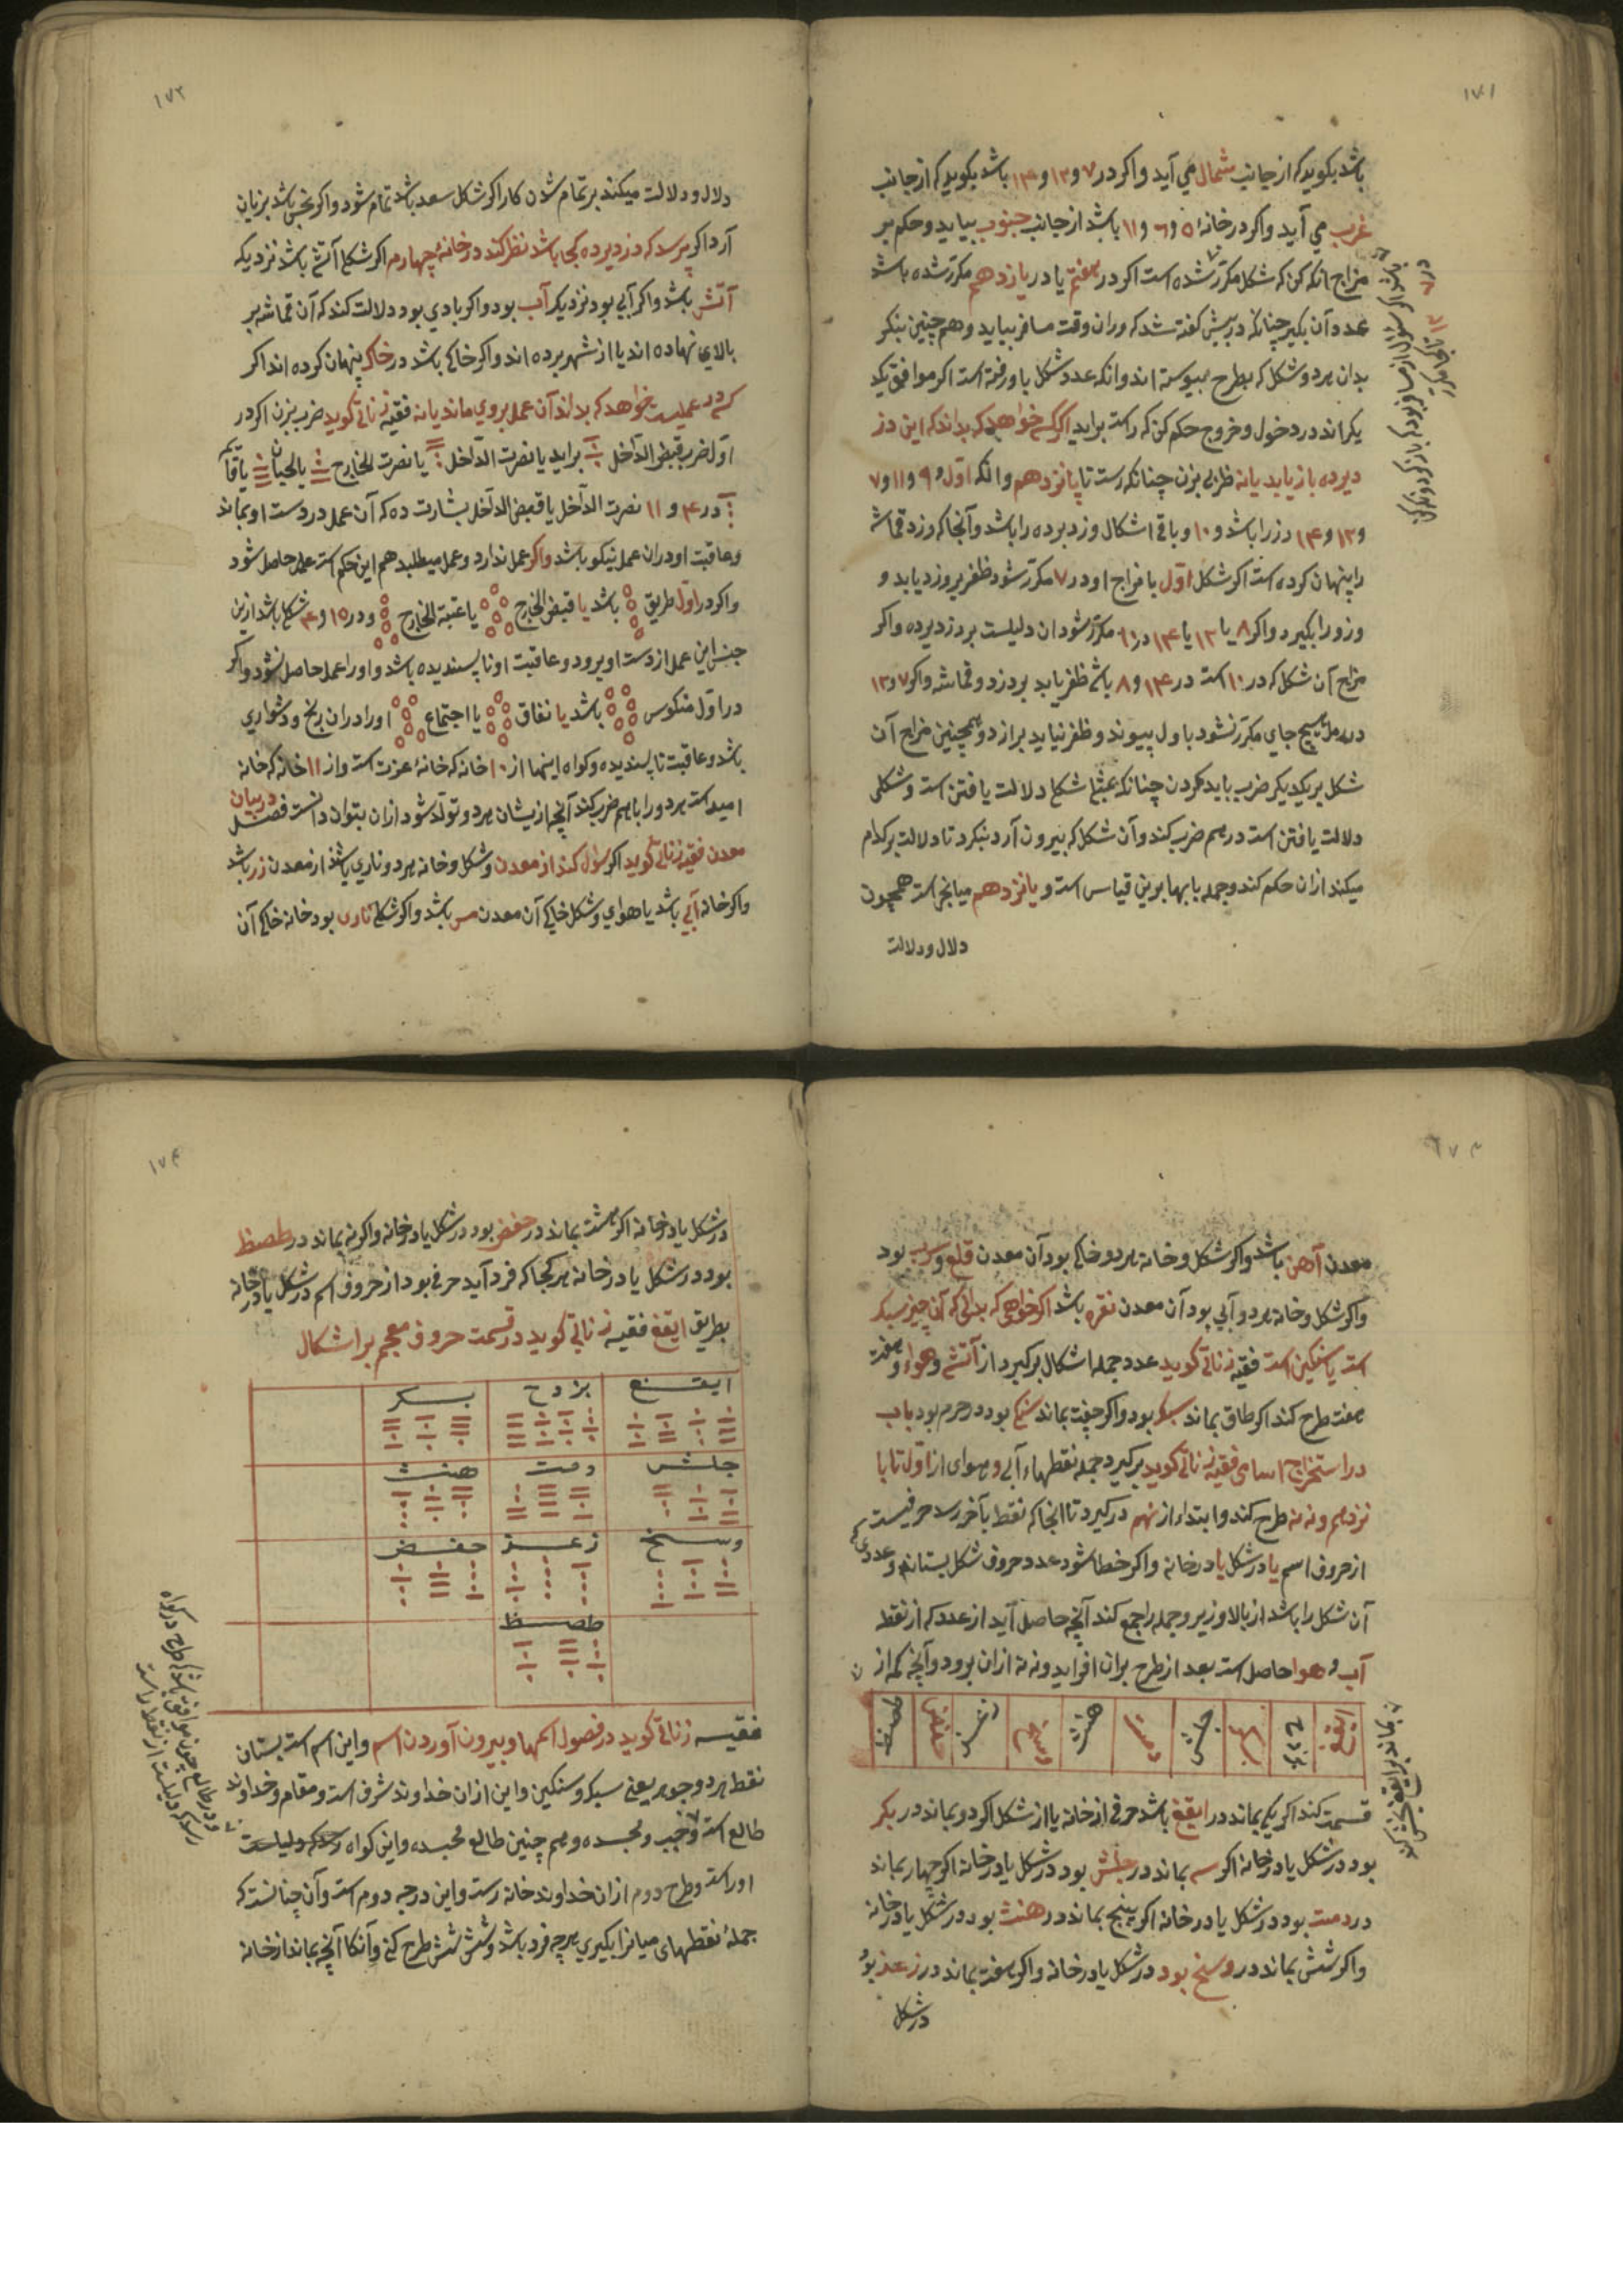 ۱۷۱
باشد بکوید که از جانب شمال می آید و اکر در ۷ و ۱۳ و ۱۴ باشد بکوید که از جانب
غرب می آید و اکر در خانهٔ ۵ و ۶ و ۱۱ باشد از جانب جنوب بیاید و حکم بر
مزاج انکه کن که شکل مکرّر شده است اکر در هفتم یا در یازدهم مکرّر شده باشد
عدد آن بکیر چنانکه در پیش کفته شد که وران وقت مسافر بیاید و هم چنین بنکر
بدان هر دو شکل که بطرح پیوسته اند وانکه عدد شکل باو رفته است اکر موافق یکد
یکراند در دخول و خروج حکم کن که راست براید اکر کسی خواهد که بداند که این دز
دیرده باز یابد یا نه ظربی بزن چنانکه رست تا پانزدهم وانکه اوّل و ۹ و ۱۱ و ۷
و ۱۳ و ۱۴ دزرا باشد و ۱۰ و باقی اشکال وزد برده را باشد و آنجا که دزد قماشه
را پنهان کرده است اکر شکل اوّل یا مزاج او در ۷ مکرّر شود ظفر بر وزد یابد و
وزورا بکیرد و اکر ۸ یا ۱۲ یا ۱۴ در ۹ مکرّر شود ان دلیلست بر دزدیرده و اکر
مزاج آن شکل که در ۱۰ است در ۱۴ و ۸ باشد ظفر یابد بر دزد و قماشه و اکر ۷ و ۱۳
در رمل هیچ جای مکرّر نشود باول پیوند و ظفر نیابد بر از دو همچنین مزاج آن
شکل بر یکدیکر ضرب باید کردن چنانکه عیثا شکل دلالت یافتن است و شکلی
دلالت یافتن است در هم ضرب کند و آن شکل که بیرون آرد بنکرد تا دلالت بر کدام
میکند ازان حکم کند و جمله بابها برین قیاس است و پانزدهم میانجی است همچون
دلال و دلالت
۱۷۲
دلال و دلالت میکند بر تمام شدن کار اکر شکل سعد باشد تمام شود و اکر نحس باشد بزیان
آرد اکر پرسد که دزدیرده کجا باشد نظر کند در خانهٔ چهارم اکر شکل آتشی باشد نزدیکه
آتش باشد و اکر آبی بود نزدیکه آب بود و اکر بادی بود دلالت کند که آن قماشه بر
بالای نهاده اند یا از شهر برده اند و اکر خاکی باشد در خاک پنهان کرده اند اکر
کر در عملیت خواهد که بداند آن عمل بروی ماند یا نه فقیه زناتی کوید ضرب بزن اکر در
اوّل ضرب قبض الدّاخل براید یا نصرت الدّاخل یا نصرت الخارج یا لحیان یا قآ
در ۴ و ۱۱ نصرت الدّاخل یا قبض الدّاخل بشارت ده که آن عمل در دست او بماند
و عاقبت او دران عمل نیکو باشد و اکر عمل ندارد و عمل میطلبد هم این حکم است عمل حاصل شود
و اکر در اوّل طریق باشد یا قبض الخارج یا عتبة الخارج و در ۱۵ و ۴ شکل باشد ازین
جنس این عمل از دست او برود و عاقبت او نا پسندیده باشد و اورا عمل حاصل نشود و اکر
در اوّل منکوس باشد یا نفاق یا اجتماع اورا دران رنج و دشواری
باشد و عاقبت ناپسندیده و کواه اینها از ۱۰ خانه که خانهٔ عزت است و از ۱۱ خانه که خانه
امید است هر دو را باهم ضرب کند آنچه ازیشان هر دو تولّد شود ازان بتوان دانست فصل در بیان
معدن فقیه زناتی کوید اکر سؤال کند از معدن و شکل و خانه هر دو ناری باشد از معدن زر باشد
و اکر خانه آبی باشد یا هوای و شکل خاکی آن معدن مس باشد و اکر شکل ناری بود خانه خاکی آن
معدن آهن باشد و اکر شکل و خانه هر دو خاکی بود آن معدن قلع و سرب بود
و اکر شکل و خانه هر دو آبی بود آن معدن نقره باشد اکر خواهی که بدانی که آن چیز سبک
است یا سنکین است فقیه زناتی کوید عدد جمله اشکال برکیرد از آتش و هواء و هفت
هفت طرح کند اکر طاق بماند سبک بود و اکر جفت بماند سنکین بود در حرم بود باب
در استخراج اسامی فقیه زناتی کوید برکیرد جمله نقطهاء آبی و هوای از اوّل تا پا
نزدهم و نه نه طرح کند و ابتداء از نهم درکیرد تا آنجا که نقط بآخر رسد حرفیست
از حروف اسم یا در شکل یا در خانه و اکر خطا شود عدد حروف شکل بستاند و عددی که
آن شکل را باشد از بالا و زیر و جمله را جمع کند آنچه حاصل آید از عدد که از نقط
آب و هوا حاصل است بعد از طرح بران افزاید و نه نه ازان برود و آنچه کم از
ایقغ بزدح بکر جلش دمت هنث وسخ زعذ حفض طصظ
قسمت کند اکر یکی بماند در ایقغ باشد حرفی از خانه یا از شکل اکر دو بماند در بکر
بود در شکل یا در خانه اکر سه بماند در جلش بود در شکل یا در خانه اکر چهار بماند
در دمت بود در شکل یا در خانه اکر پنج بماند در هنث بود در شکل یا در خانه
و اکر شش بماند در وسخ بود در شکل یا در خانه و اکر هفت بماند در زعذ بود
در شکل
۱۷۴
در شکل یا در خانه اکر هشت بماند در حفض بود در شکل یا در خانه و اکر نه بماند در طصظ
بود در شکل یا در خانه هر کجا که فرد آید حرفی بود از حروف اسم در شکل یا در خانه
بطریق ایقغ فقیه زناتی کوید در قسمت حروف معجم بر اشکال
ایقغ بزدح بسکر
جلش دمت هنث
وسخ زعذ حفض
طصظ
فقیه زناتی کوید در فصول اسمها و بیرون آوردن اسم و این اسم است بستان
نقط هر دو جوهر یعنی سبک و سنکین و این ازان خداوند شرف است و مقام و خداوند
طالع است و هم چنین طالع و این کواه
اوراست و طرح دوم ازان خداوند خانه رست و این درجه دوم است و آن چنانست که
جملهٔ نقطهای میانرا بکیری هرچه فرد باشد و شش شش طرح کنی و آنکا آنچه بماند از خانه